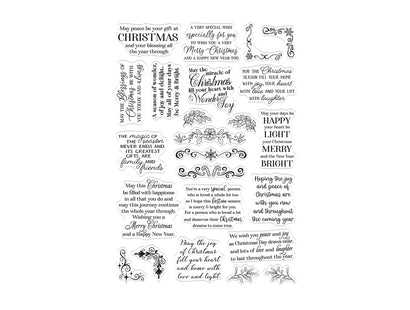 May peace be your gift at
CHRISTMAS
and your blessing all
the year through.
A VERY SPECIAL WISH
especially for you
TO WISH YOU A VERY
Merry Christmas
AND A HAPPY NEW YEAR TOO
MAY THE Blessings OF
Christmas BE WITH
YOU TODAY AND always
A season of wonder,
of joy and delight.
May all of your days
be Merry & Bright.
May the miracle of
Christmas
fill your heart with
Wonder and
Joy
MAY THE
Christmas
SEASON FILL YOUR HOME
WITH joy YOUR HEART
WITH love AND YOUR LIFE
WITH laughter.
THE magic OF
THE season
NEVER ENDS AND
ITS GREATEST
GIFTS ARE family
AND friends
May your days be
HAPPY
your heart be
LIGHT
your Christmas
MERRY
and the New Year
BRIGHT
May this Christmas
be filled with happiness
in all that you do and
may this journey continue
the whole year through.
Wishing you a
Merry Christmas
and a Happy New Year.
You're a very special person
who is loved a whole lot too
so I hope this festive season
is merry & bright for you.
For a person who is loved a lot
and deserves their Christmas
dreams to come true.
Hoping the joy
and peace of
Christmas are
with you now
and throughout
the coming year
May the joy
of Christmas
fill your heart
and home with
love and light
We wish you peace and joy
as Christmas Day draws near
and lots of love and laughter
to last throughout the year